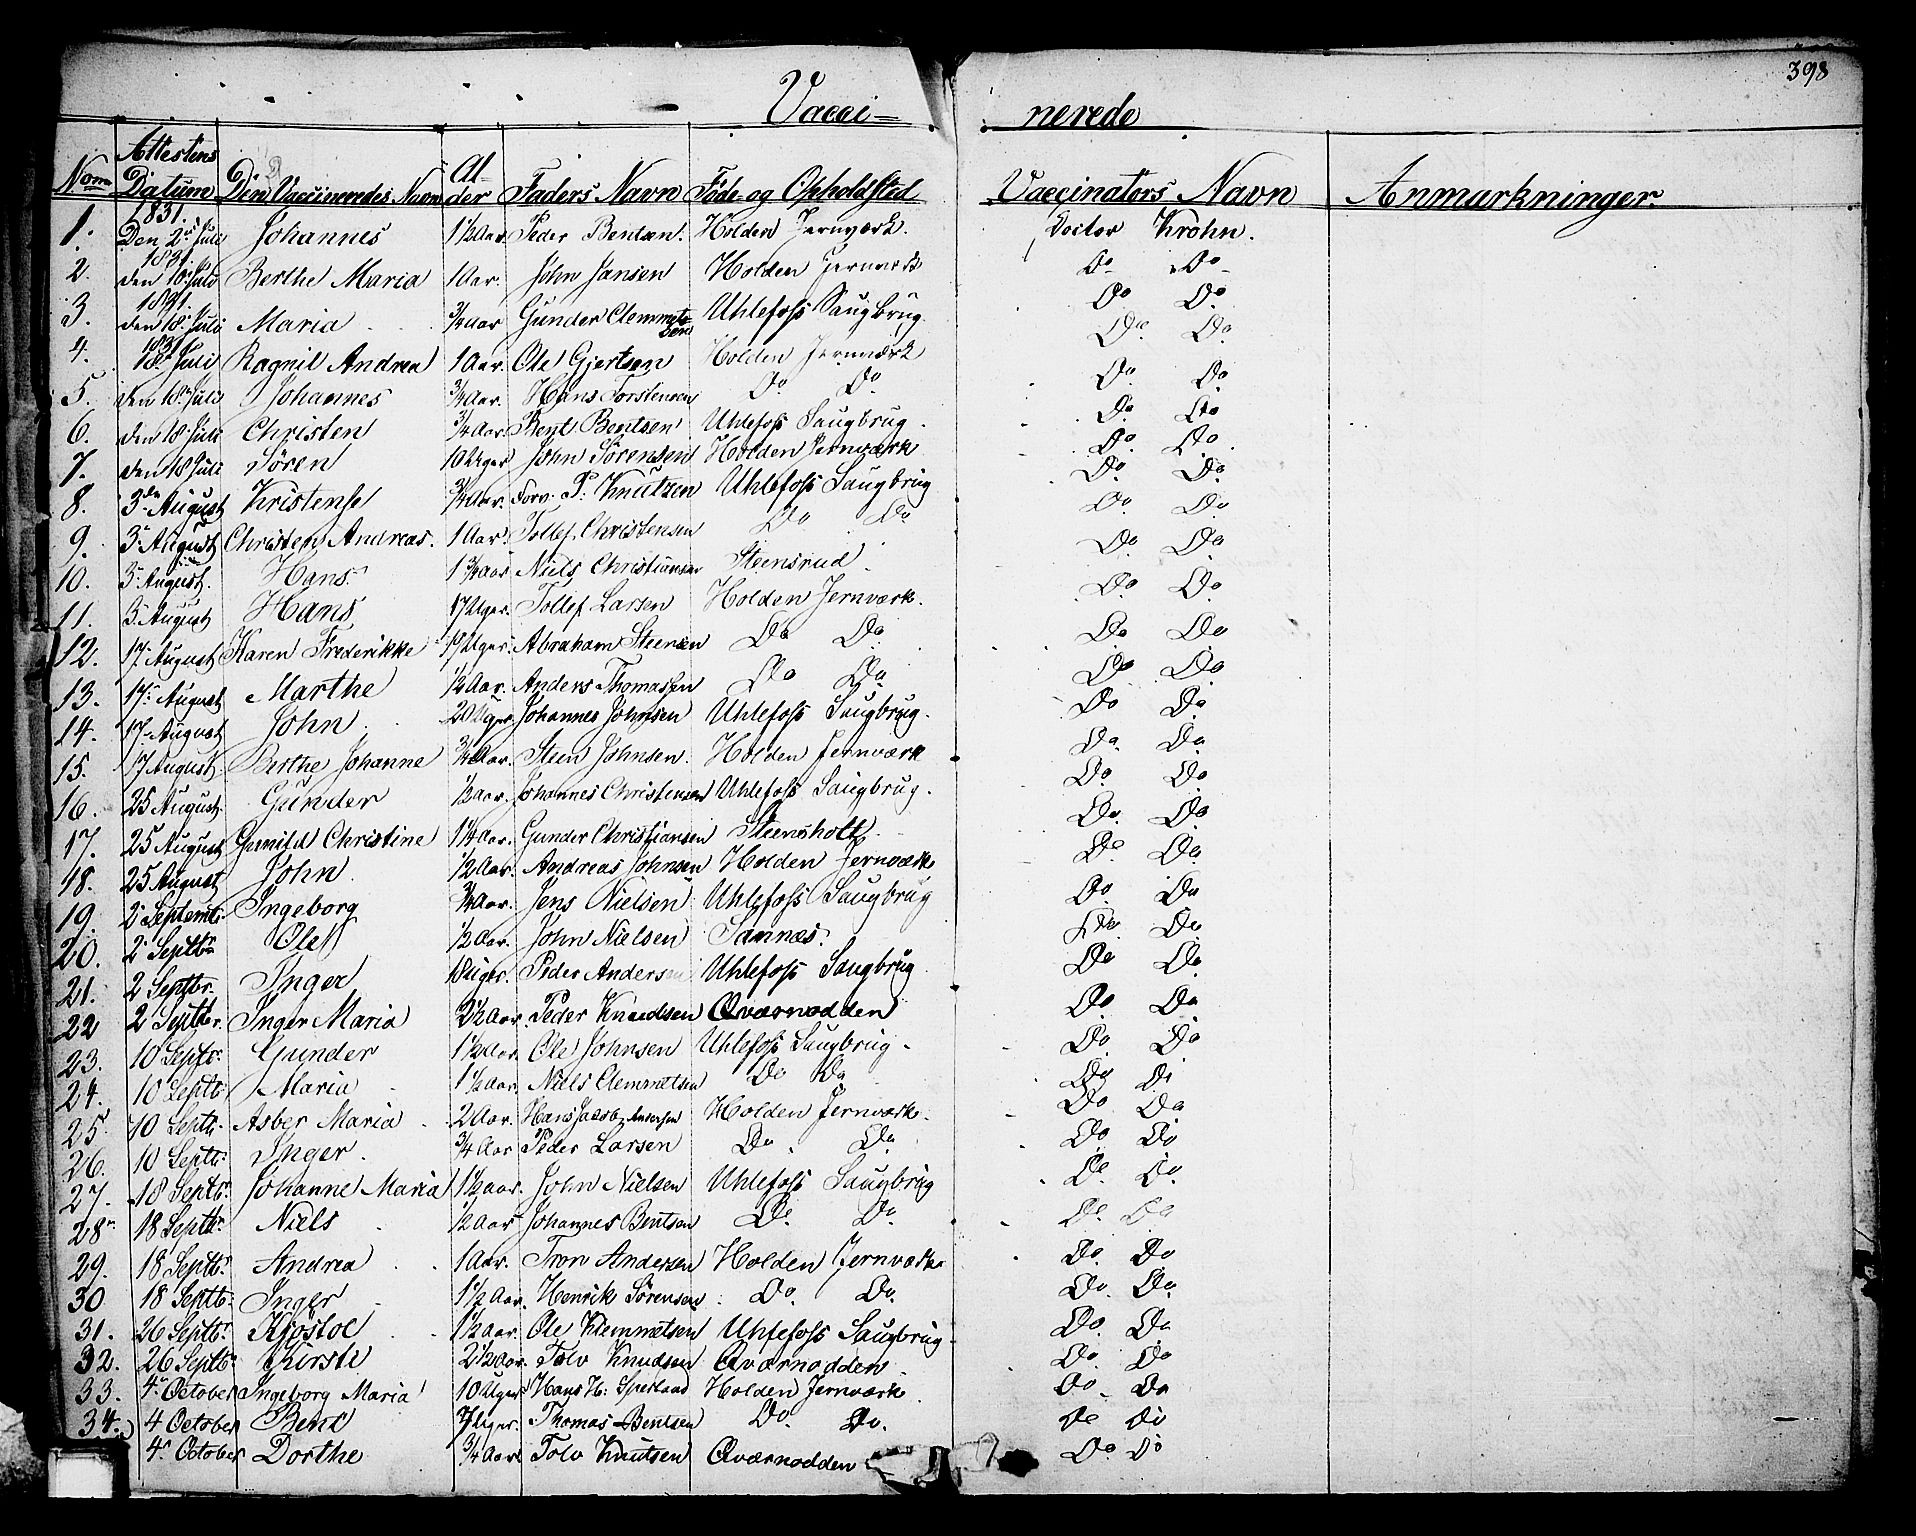 398
Vacci- nerede
Nom Attestens Datum Den Vaccineredes Navn Alder Faders Navn Föde og Opholdsted Vaccinators Navn Anmærkninger.
1. 1831. Den 2 Juli Johannes 1½ Aar Peder Bentsen. Holden Jernværk. Doctor Krohn.
2. 1831. den 18 Juli Berthe Maria 1 Aar. John Jansen Holden Jernværk Do Do
3. 1831. den 18 Juli Maria ¾ Aar Gunder Clemmetsen Uhlefoss Saugbrug. Do Do
4. 1831. 18 Juli Ragnil Andrea 1 Aar. Ole Gjertsen Holden Jernværk Do Do
5. den 18 Juli Johannes ¾ Aar. Hans Torstensen Do Do Do Do
6. den 18 Juli Christen ¾ Aar Bent Bentsen Uhlefoss Saugbrug. Do Do
7. den 18 Juli Sören 10 Uger John Sörensen Holden Jernværk Do Do
8. 3 August Kristense ¾ Aar. Forv. P: Knutzen Uhlefoss Saugbrug Do Do
9. 3 August Christen Andreas. 1 Aar. Tollef Christensen Do Do Do Do
10. 3 August. Hans 1¾ Aar Niels Christiansen Steensrud Do Do
11. 3 August Hans 17 Uger. Tollef Larsen Holden Jernværk. Do Do
12. 17 August Karen Frederikke 19 Uger. Abraham Steensen Do Do Do Do
13. 17 August Marthe ½ Aar. Anders Thomassen Do Do Do Do
14. 17 August John 20 Uger. Johannes Johnsen Uhlefoss Saugbrug. Do Do
15. 17 August. Berthe Johanne ¾ Aar. Steen Johnsen. Holden Jernværk Do Do
16. 25 August Gunder ½ Aar. Johannes Christensen Uhlefoss Saugbrug. Do Do
17. 25 August Gunild Christine 1¼ Aar. Gunder Christiansen Steensholt Do Do
18. 25 August John ½ Aar. Andreas Johnsen Holden Jernværk Do Do
19. 2 Septemb. Ingeborg ¾ Aar. Jens Nielsen Uhlefoss Saugbrug Do Do
20. 2 Septbr Ole ½ Aar. John Nielsen Sannæs. Do Do
21. 2 Septbr. Inger 18 Uger. Peder Andersen Uhlefoss Saugbrug Do Do
22 2 Septbr. Inger Maria 2½ Aar. Peder Knudsen Qværnodden Do Do
23. 10 Septbr. Gunder 1½ Aar Ole Johnsen Uhlefoss Saugbrug. Do Do
24. 10 Septbr Maria 1½ Aar. Niels Clemmetsen Do Do Do Do
25. 10 Septbr. Asber Maria 2 Aar. Hans Jacob Andersen Holden Jernværk. Do Do
26. 10 Septbr. Inger. ¾ Aar Peder Larsen Do Do Do Do
27. 18 Septbr. Johanne Maria 1½ Aar. John Nielsen Uhlefoss Saugbrug Do Do
28 18 Septbr. Niels ½ Aar Johannes Bentsen Do Do Do Do
29. 18 Septbr. Andrea 1 Aar. Tron Andersen Holden Jernværk Do Do
30 18 Septbr. Inger 1½ Aar. Henrik Sörensen Do. Do. Do Do
31. 26 Septbr. Kjöstol 1½ Aar. Ole Klemmetsen Uhlefoss Saugbrug. Do Do
32. 26 Septbr. Kirsti 2½ Aar. Tolv Knudsen Qværnodden. Do Do
33. 4 October Ingeborg Maria 10 Uger Hans H: Holden Jernværk Do Do
34. 4 October Bent Uger. Thomas Bentsen Do. Do. Do Do
4 October Dorthe ¾ Aar Tolv Knutsen Qværnodden Do Do